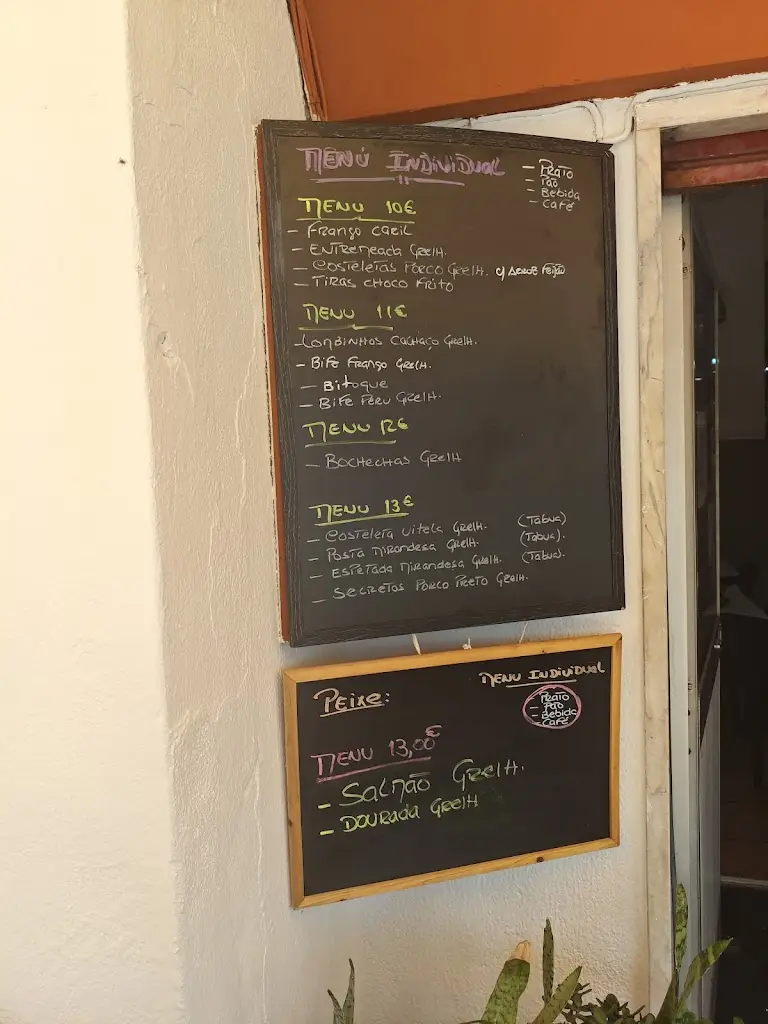 MENÚ INDIVIDUAL
- Prato
- Pão
- Bebida
- Café
MENU 10€
- Frango Caril
- Entremeada Grelh.
- Costeletas Porco Grelh. c/ Arroz Feijão
- Tiras Choco Frito
MENU 11€
- Lombinhos Cachaço Grelh.
- Bife Frango Grelh.
- Bitoque
- Bife Peru Grelh.
MENU 12€
- Bochechas Grelh
MENU 13€
- Costeleta Vitela Grelh. (Tabua)
- Posta Mirandesa Grelh. (Tabua).
- Espetada Mirandesa Grelh. (Tabua).
- Secretos Porco Preto Grelh.
MENU INDIVIDUAL
Peixe:
- Prato
- Pão
- Bebida
- Café
MENU 13,00€
- Salmão Grelh.
- Dourada Grelh